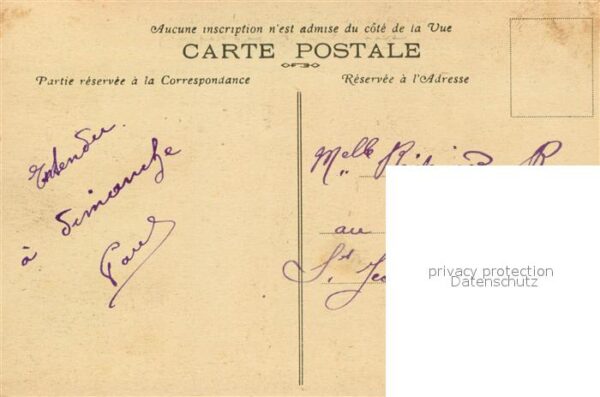 Aucune inscription n'est admise du côté de la Vue
CARTE POSTALE
Partie réservée à la Correspondance
Réservée à l'Adresse
Entendu
à dimanche
Paul
Melle
au
St Jea
privacy protection
Datenschutz